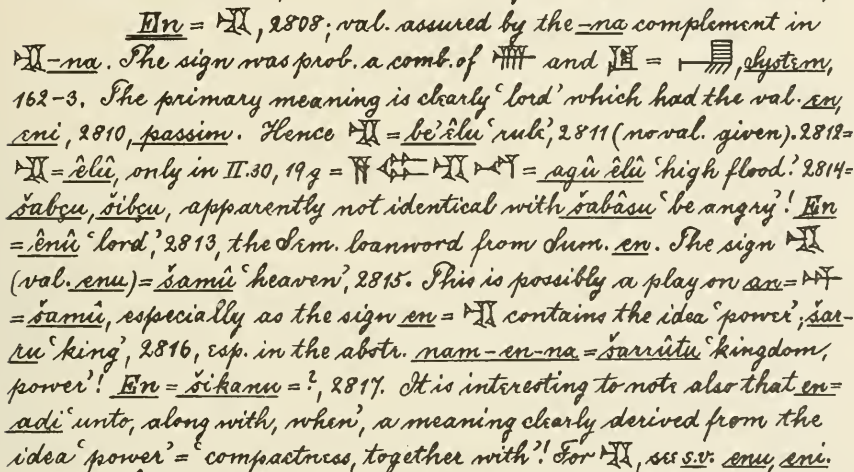 En = 𒂗, 2808; val. assured by the -na complement in
𒂗-na. The sign was prob. a comb. of and = , System,
162-3. The primary meaning is clearly ‘lord’ which had the val. en,
eni, 2810, passim. Hence 𒂗 = be’êlu ‘rule’, 2811 (no val. given). 2812=
𒂗 = êlû, only in II. 30, 19g = 𒂗 = agû êlû ‘high flood.’ 2814=
šabçu, šibçu, apparently not identical with šabâsu ‘be angry’! En
= ênû ‘lord,’ 2813, the Sem. loanword from Sum. en. The sign 𒂗
(val. enu) = šamû ‘heaven’, 2815. This is possibly a play on an = 𒀭
= šamû, especially as the sign en = 𒂗 contains the idea ‘power’; šar-
ru ‘king’, 2816, esp. in the abstr. nam-en-na = šarrûtu ‘kingdom,
power’! En = šikanu = ?, 2817. It is interesting to note also that en=
adi ‘unto, along with, when’, a meaning clearly derived from the
idea ‘power’ = ‘compactness, together with’! For 𒂗, see s.v. enu, eni.